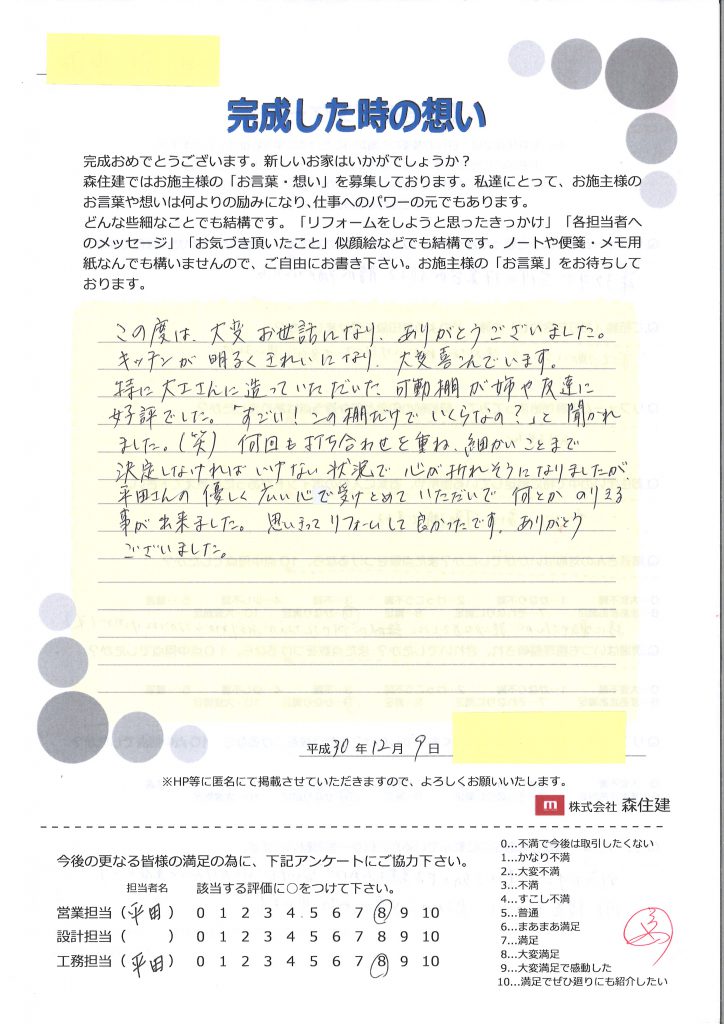 完成した時の想い
完成おめでとうございます。新しいお家はいかがでしょうか？
森住建ではお施主様の「お言葉・想い」を募集しております。私達にとって、お施主様の
お言葉や想いは何よりの励みになり、仕事へのパワーの元でもあります。
どんな些細なことでも結構です。「リフォームをしようと思ったきっかけ」「各担当者へ
のメッセージ」「お気づき頂いたこと」似顔絵などでも結構です。ノートや便箋・メモ用
紙なんでも構いませんので、ご自由にお書き下さい。お施主様の「お言葉」をお待ちして
おります。
この度は、大変お世話になり、ありがとうございました。
キッチンが明るくきれいになり、大変喜こんでいます。
特に大工さんに造っていただいた可動棚が姉や友達に
好評でした。「すごい！この棚だけでいくらなの？」と聞かれ
ました。(笑) 何回も打ち合わせを重ね、細かいことまで
決定しなければいけない状況で心が折れそうになりましたが、
平田さんの優しく広い心で受けとめていただいで何とかのりえる
事が出来ました。思いきってリフォームして良かったです。ありがとう
ございました。
平成30年12月9日
※HP等に匿名にて掲載させていただきますので、よろしくお願いいたします。
m 株式会社 森住建
今後の更なる皆様の満足の為に、下記アンケートにご協力下さい。
担当者名 該当する評価に○をつけて下さい。
営業担当（平田） 0 1 2 3 4 5 6 7 8 9 10
設計担当（ ） 0 1 2 3 4 5 6 7 8 9 10
工務担当（平田） 0 1 2 3 4 5 6 7 8 9 10
0…不満で今後は取引したくない
1…かなり不満
2…大変不満
3…不満
4…すこし不満
5…普通
6…まあまあ満足
7…満足
8…大変満足
9…大変満足で感動した
10…満足でぜひ廻りにも紹介したい